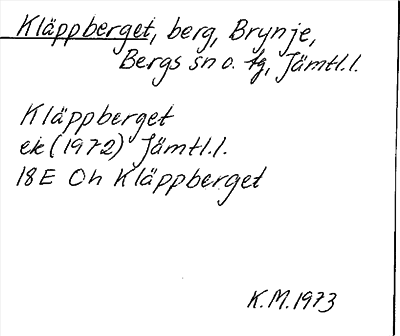 Kläppberget, berg, Brynje,
Bergs sn o. tg, Jämtl.l.
Kläppberget
ek (1972) Jämtl.l.
18E Oh Kläppberget
K.M.1973